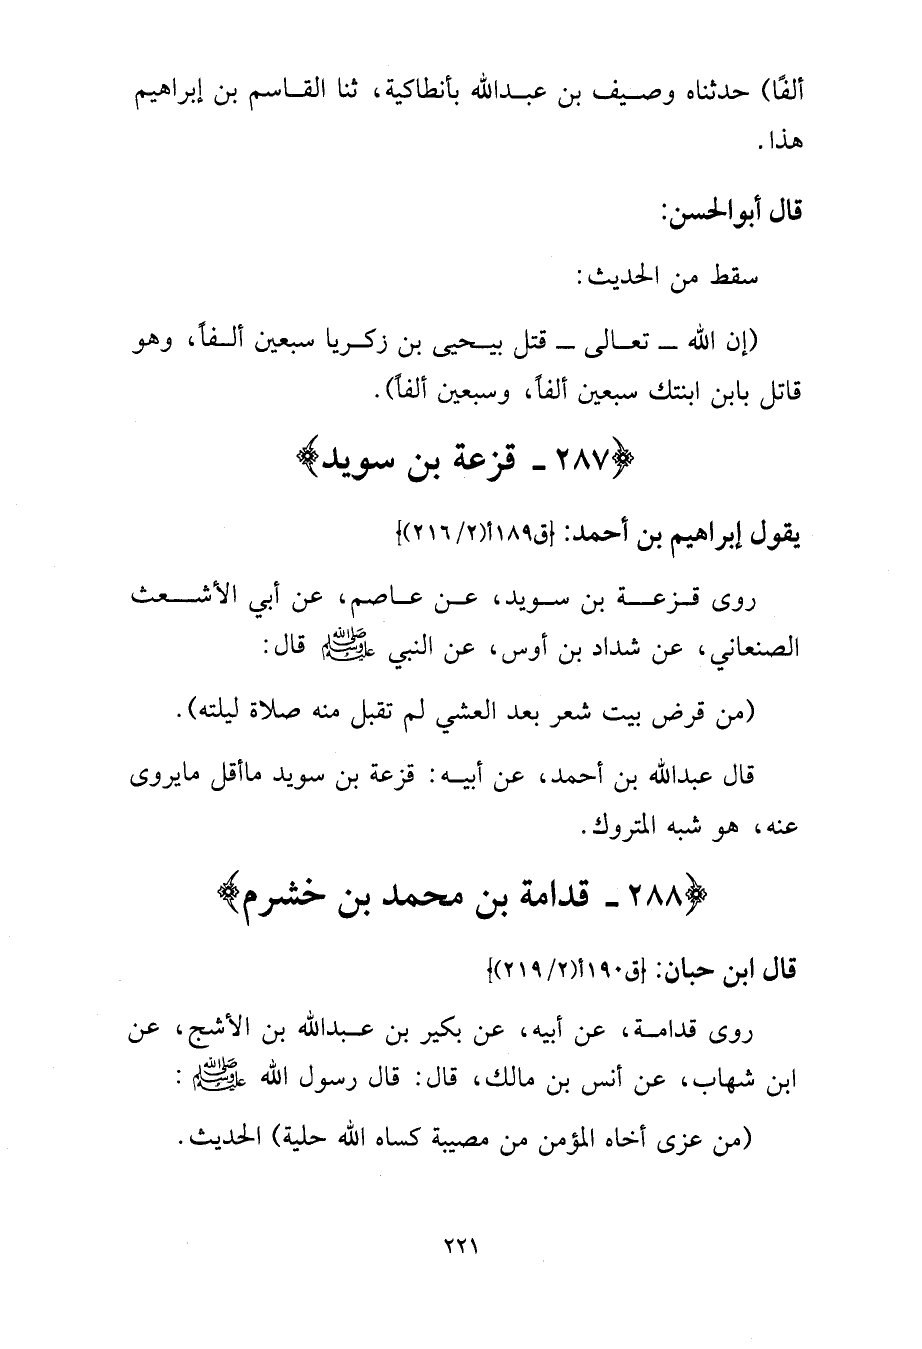 ألفًا) حدثناه وصيف بن عبدالله بأنطاكية، ثنا القاسم بن إبراهيم
هذا.
قال أبوالحسن:
سقط من الحديث:
(إن الله ـ تعالى ـ قتل بيحيى بن زكريا سبعين ألفاً، وهو
قاتل بابن ابنتك سبعين ألفاً، وسبعين ألفاً).
﴿٢٨٧ ـ قزعة بن سويد﴾
يقول إبراهيم بن أحمد: {ق١٨٩أ(٢١٦/٢)}
روى قزعة بن سويد، عن عاصم، عن أبي الأشعث
الصنعاني، عن شداد بن أوس، عن النبي ﷺ قال:
(من قرض بيت شعر بعد العشي لم تقبل منه صلاة ليلته).
قال عبدالله بن أحمد، عن أبيه: قزعة بن سويد ماأقل مايروى
عنه، هو شبه المتروك.
﴿٢٨٨ ـ قدامة بن محمد بن خشرم﴾
قال ابن حبان: {ق١٩٠أ(٢١٩/٢)}
روى قدامة، عن أبيه، عن بكير بن عبدالله بن الأشج، عن
ابن شهاب، عن أنس بن مالك، قال: قال رسول الله ﷺ :
(من عزى أخاه المؤمن من مصيبة كساه الله حلية) الحديث.
٢٢١